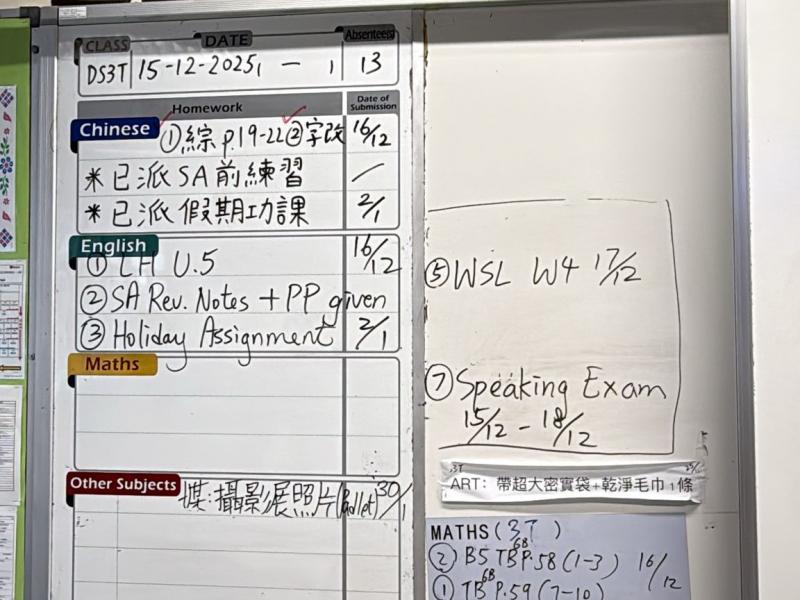 CLASS DATE Absentee(s)
DS3T 15-12-2025, — 1 13
Homework Date of Submission
Chinese ①綜 p.19-22 ②字改 16/12
* 已派 SA 前練習 /
* 已派 假期功課 2/1
English
① LH U.5 16/12
② SA Rev. Notes + PP given
③ Holiday Assignment 2/1
Maths
Other Subjects 媒:攝影展照片(Padlet) 30/1
⑤ WSL W4 17/12
⑦ Speaking Exam
15/12 - 18/12
3T
ART: 帶超大密實袋+乾淨毛巾1條
MATHS(3T)
② B5 TB 6B P.58 (1-3) 16/12
① TB 6B P.59 (7-10)